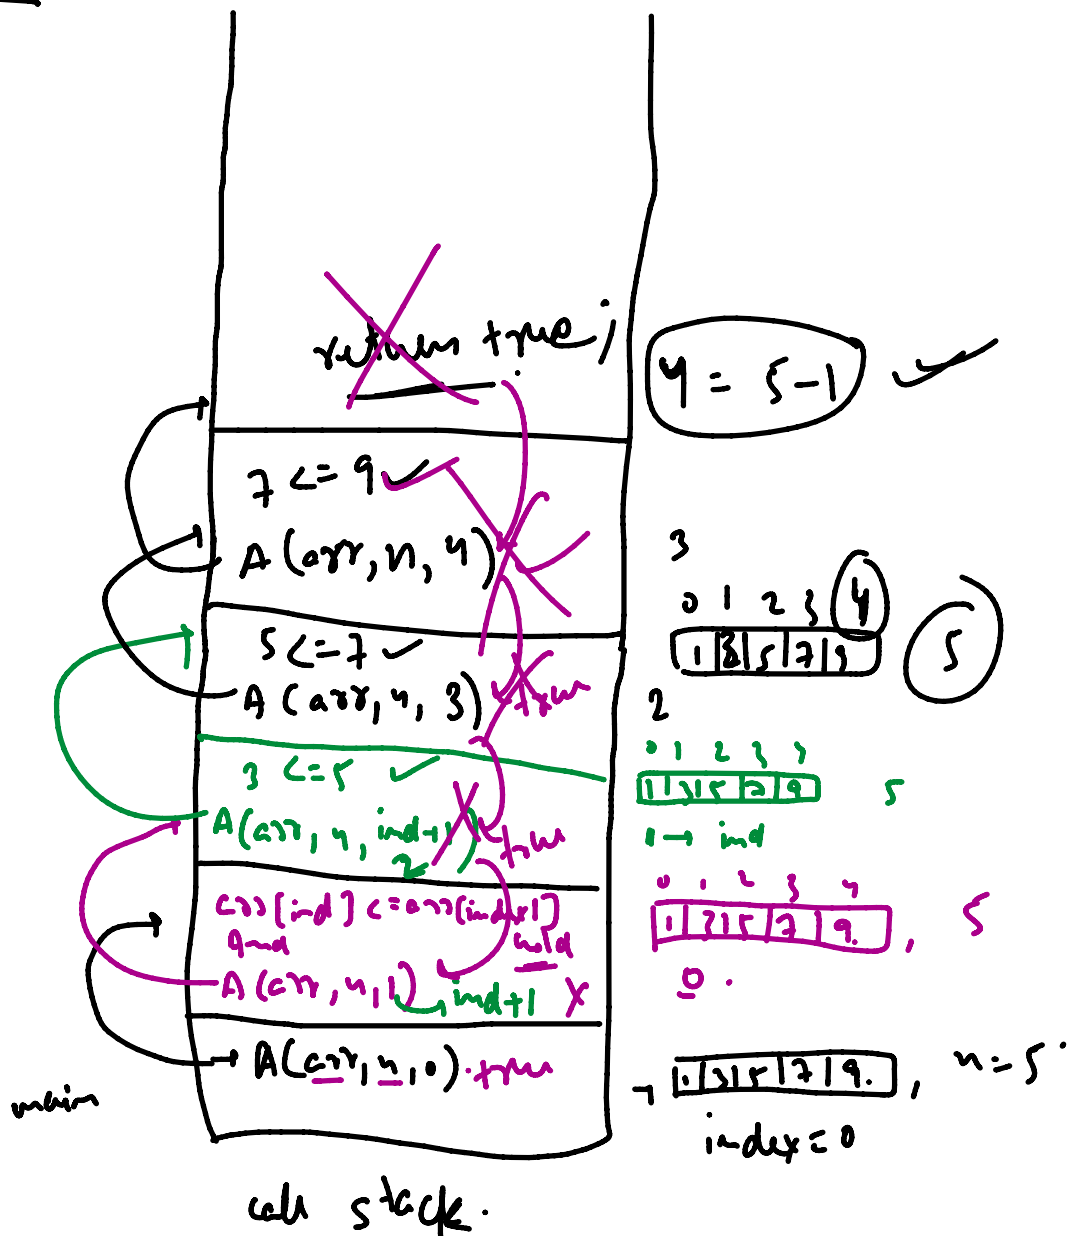 return true;
4 = 5-1
7 <= 9
A (arr, n, 4)
3
0 1 2 3 4
1 3 5 7 9
5
5 <= 7
A (arr, n, 3) true
2
3 <= 5
0 1 2 3 4
1 3 5 7 9 5
A (arr, n, ind+1) true
2
1 → ind
arr[ind] <= arr[index+1]
And
hold
0 1 2 3 4
1 3 5 7 9. , 5
0.
A (arr, n, 1) ind+1 X
A(arr, n, 0). true
1. 3 5 7 9. , n=5.
main
index=0
call stack.